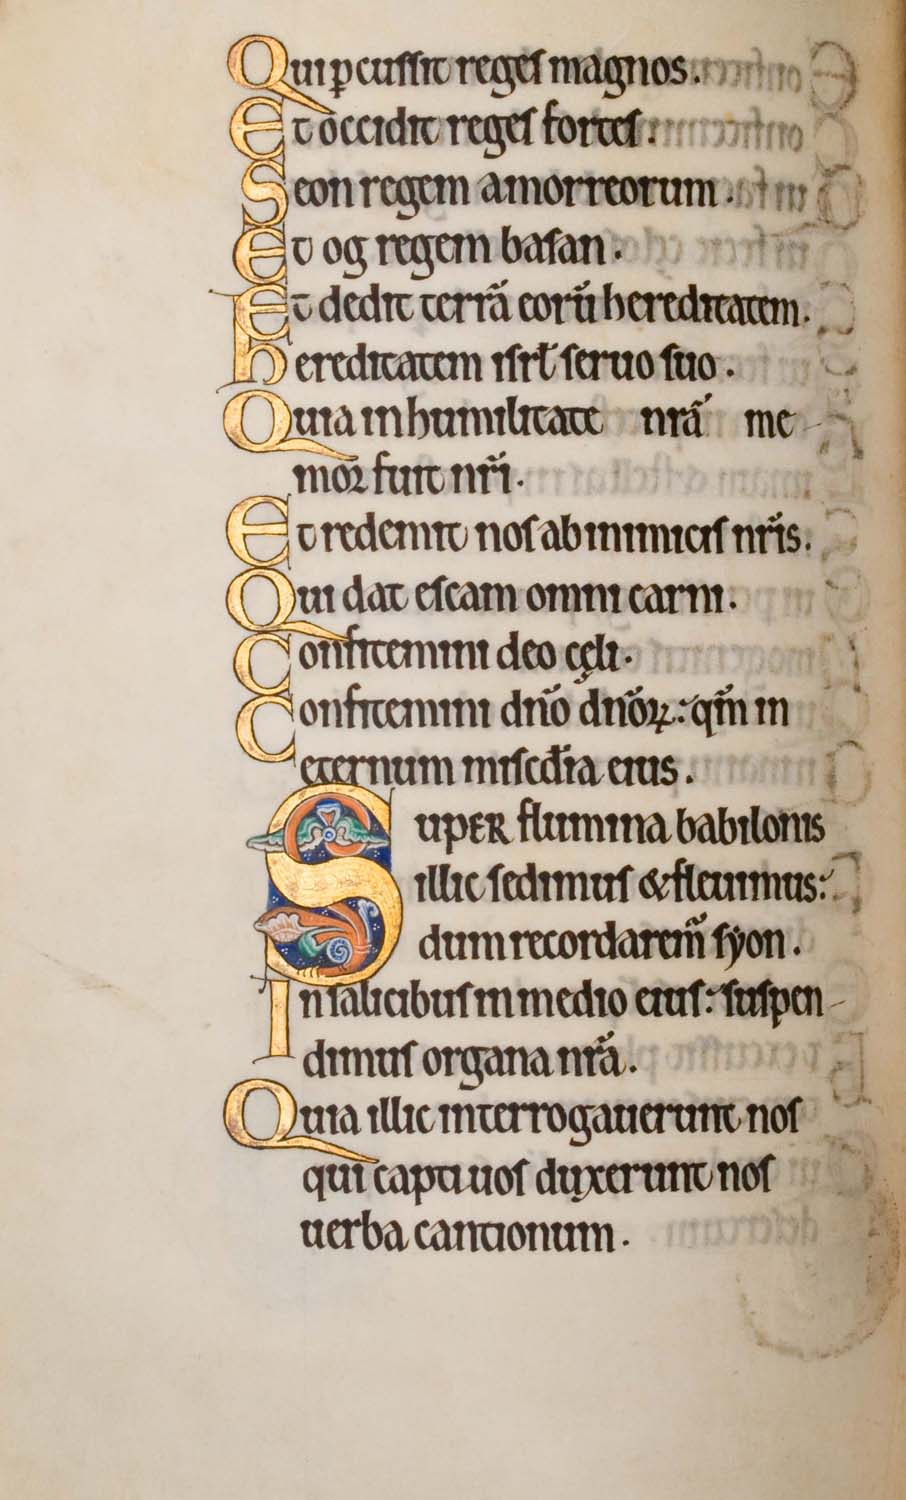 Qui ꝑcuſſit regeſ magnos.
Et occidit regeſ forteſ.
Seon regem amorreorum.
Et og regem baſan.
Et dedit terrā eorū hereditatem.
Hereditatem iſrł ſeruo ſuo.
Quia in humilitate nrā me-
moꝛ fuit nrī.
Et redemit noſ ab inimiciſ nrīs.
Qui dat eſcam omni carni.
Confitemini deo cęli.
Confitemini dnō dnōꝝ: qm̄ in
Ceternum miſcd̄ia eius.
Super flumina babilonis
illic ſedimuſ & fleuimus:
dum recordarem̄ ſẏon.
In ſalicibuſ in medio eiuſ: ſuſpen-
dimuſ organa nrā.
Quia illic interrogauerunt noſ
qui captiuoſ duxerunt noſ
uerba cantionum.